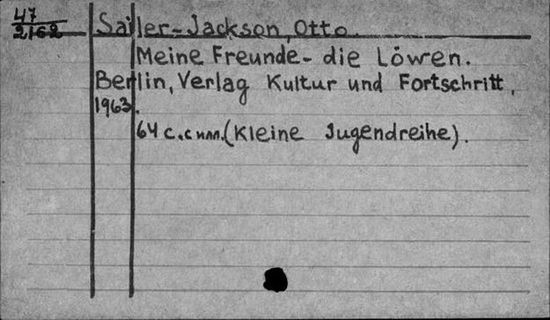 47
2162
Sailer-Jackson, Otto.
Meine Freunde - die Löwen.
Berlin, Verlag Kultur und Fortschritt,
1963.
64 с. с илл. (Kleine Jugendreihe).